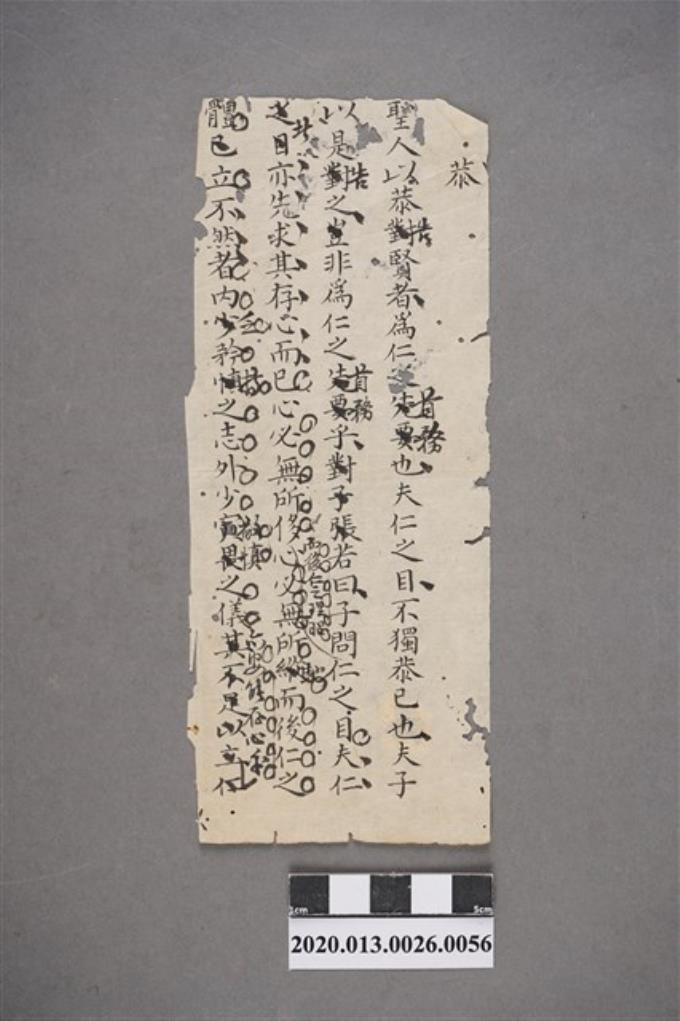 恭
聖人以恭對賢者為仁之先要也夫仁之目不獨恭已也夫子
告
首務
以是對之豈非為仁之先要乎對子張若曰子問仁之目夫仁
告
首務
之目亦先求其存心而已心必無所侈心必無所縱而後仁之
此
而後仁之理
體已立不然者內少矜慎之志外少寅畏之儀其不足以立仁
敬慎
能存心
1cm
5cm
2020.013.0026.0056